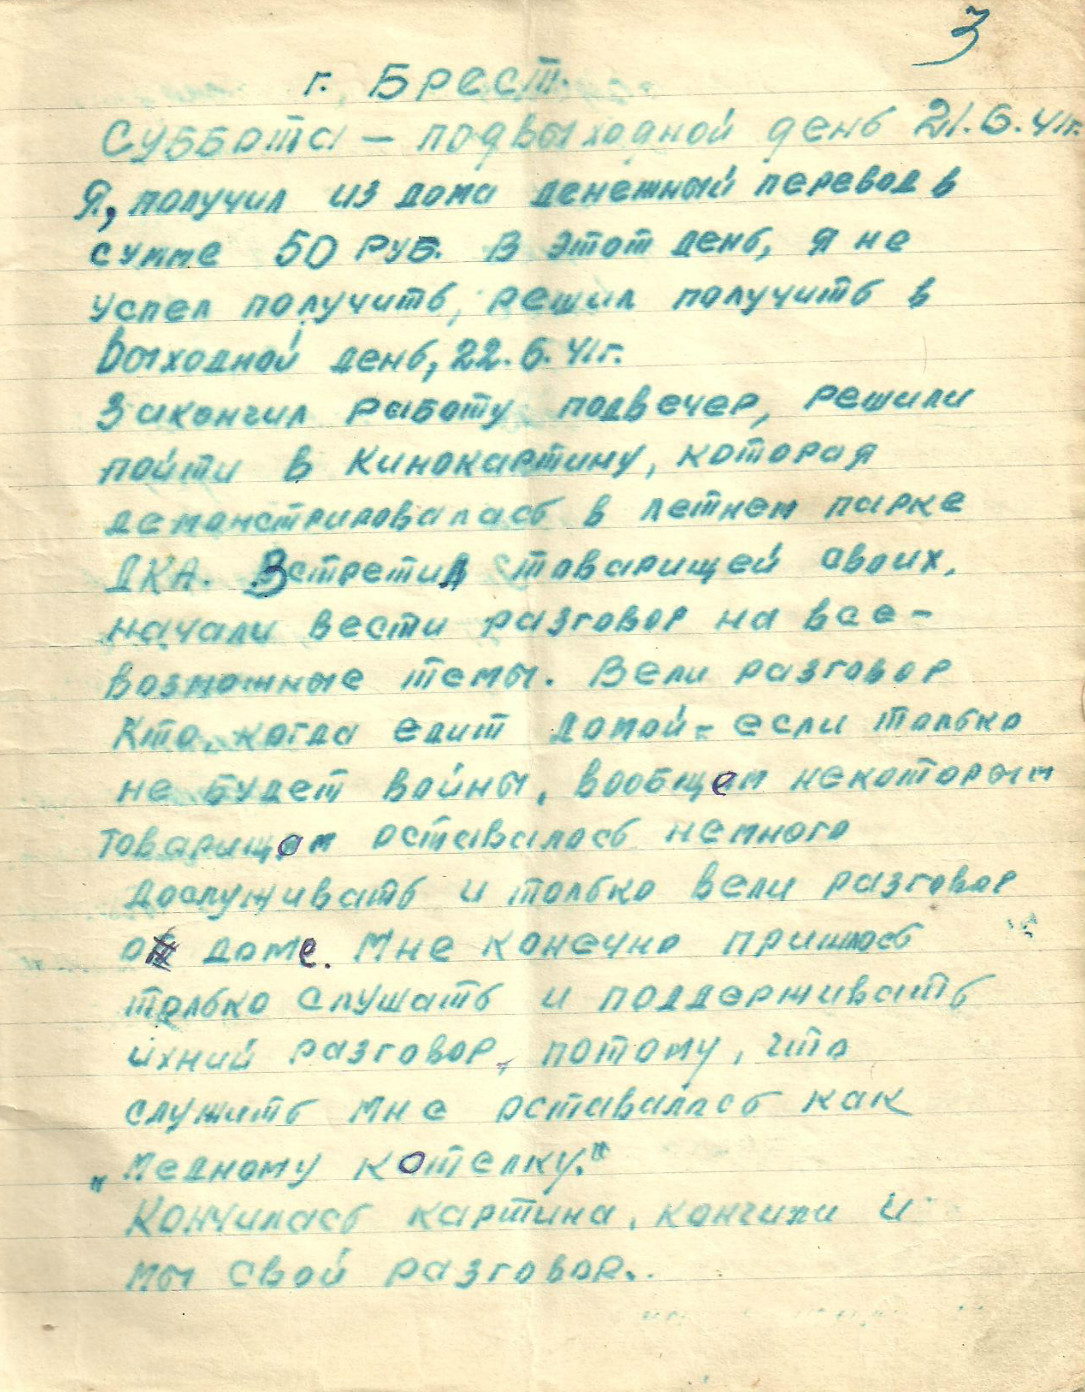 3
г. Брест.
Суббота – подвыходной день 21.6.41г.
Я, получил из дома денежный перевод в
сумме 50 руб. В этот день, я не
успел получить, решил получить в
выходной день, 22.6.41г.
Закончил работу подвечер, решили
пойти в кинокартину, которая
демонстрировалась в летнем парке
ДКА. Встретил с товарищей своих,
начали вести разговор на все-
возможные темы. Вели разговор
кто, когда едит домой – если только
не будет войны, вообщем некоторым
товарищам оставалось немного
дослуживать и только вели разговор
о доме. Мне конечно пришлось
только слушать и поддерживать
ихний разговор, потому, что
служить мне оставалось как
„Медному котелку."
Кончилась картина, кончили и
мы свой разговор..